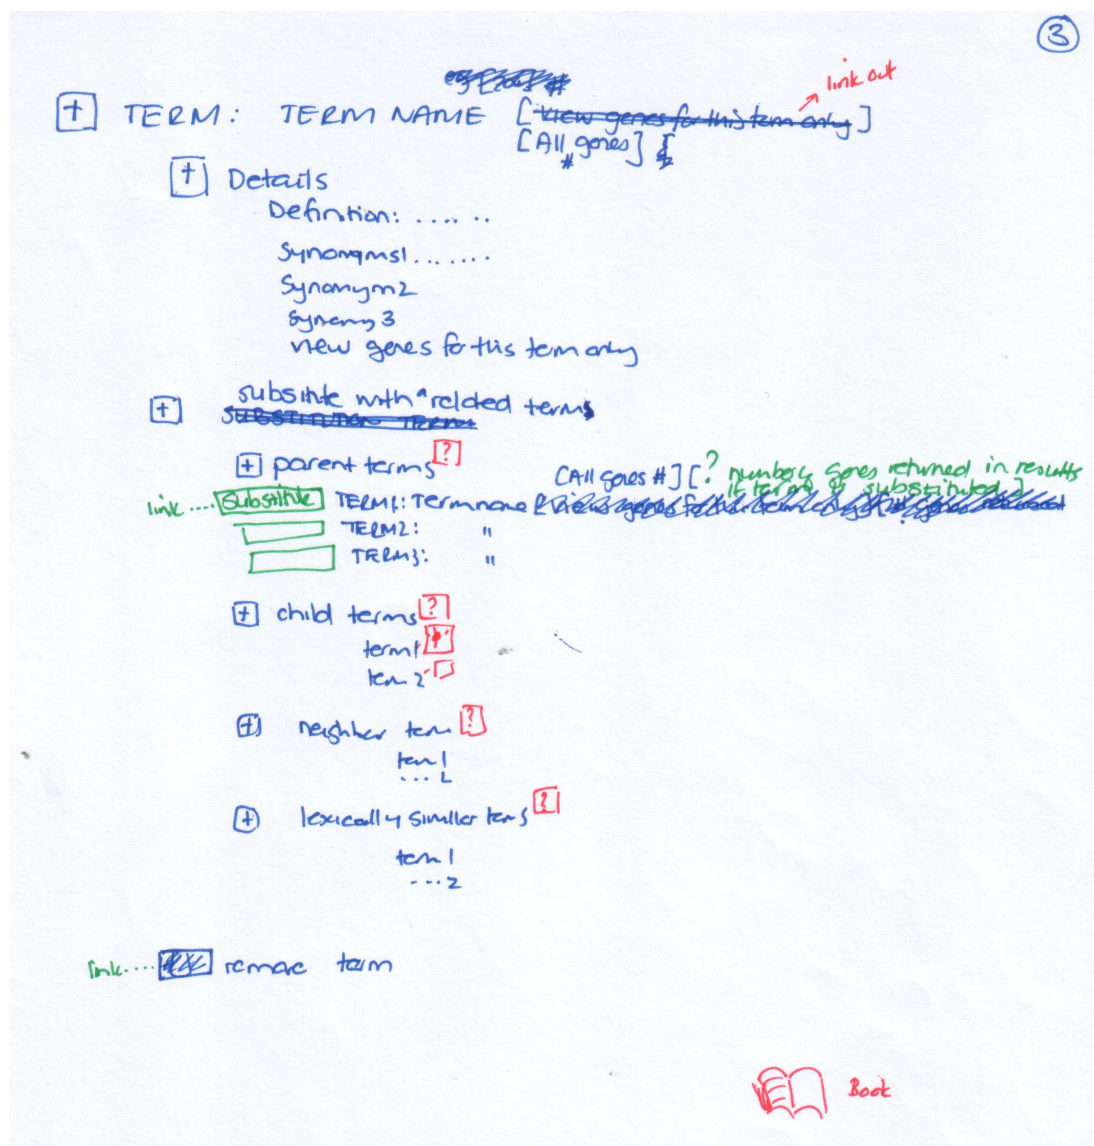 3
link out
+ TERM: TERM NAME [view genes for this term only]
[All genes] [
#
+ Details
Definition: ......
Synonyms1.......
Synonym2
Synony3
view genes for this term only
+ substitute with related terms
SUBSTITUTION TERMS
+ parent terms ?
[All genes #] [? number genes returned in results
if term is substituted]
link .... Substitute TERM1: Termname
TERM2: "
TERM3: "
+ child terms ?
term1
term 2
+ neighbor term ?
term 1
... 2
+ lexically similar terms ?
term 1
... 2
link .... remove term
Book